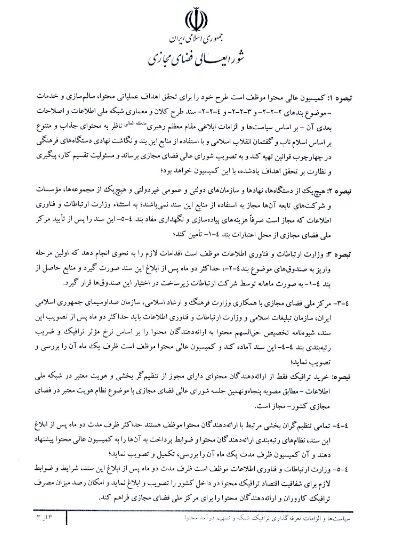 جمهوری اسلامی ایران
شورایعالی فضای مجازی
تبصره ۱: کمیسیون عالی محتوا موظف است طرح خود را برای تحقق اهداف عملیاتی محتوا، سالم‌سازی و خدمات
– موضوع بندهای ۲-۲-۲، ۳-۲-۲ و ۴-۲-۲ – سند طرح کلان و معماری شبکه ملی اطلاعات و اصلاحات
بعدی آن – بر اساس سیاست‌ها و الزامات ابلاغی مقام معظم رهبری ناظر به محتوای جذاب و متنوع
بر اساس اسلام ناب و گفتمان انقلاب اسلامی و با استفاده از منابع این بند و نگاشت نهادی دستگاه‌های فرهنگی
در چهارچوب قوانین تهیه کند و به تصویب شورای عالی فضای مجازی برساند و مسئولیت تقسیم کار، پیگیری
و نظارت بر تحقق اهداف یادشده، با این کمیسیون خواهد بود؛
تبصره ۲: هیچ‌یک از دستگاه‌ها، نهادها و سازمان‌های دولتی و عمومی غیردولتی و هیچ‌یک از مجموعه‌ها، مؤسسات
و شرکت‌های تابعه آن‌ها مجاز به استفاده از منابع این سند نمی‌باشند؛ به استثناء وزارت ارتباطات و فناوری
اطلاعات که مجاز است صرفاً هزینه‌های پیاده‌سازی و نگهداری مفاد بند ۵-۴ این سند را پس از تأیید مرکز
ملی فضای مجازی از محل اعتبارات بند ۱-۴ تأمین کند؛
تبصره ۳: وزارت ارتباطات و فناوری اطلاعات موظف است اقدامات لازم را به نحوی انجام دهد که اولین مرحله
واریز به صندوق‌های موضوع بند ۲-۴، حداکثر دو ماه پس از ابلاغ این سند صورت گیرد و منابع حاصل از
بند ۱-۴ به صورت ماهانه توسط شرکت ارتباطات زیرساخت در اختیار این صندوق‌ها قرار گیرد.
۳-۴- مرکز ملی فضای مجازی با همکاری وزارت فرهنگ و ارشاد اسلامی، سازمان صداوسیمای جمهوری اسلامی
ایران، سازمان تبلیغات اسلامی و وزارت ارتباطات و فناوری اطلاعات باید حداکثر دو ماه پس از تصویب این
سند، شیوه‌نامه تخصیص حق‌السهم محتوا به ارائه‌دهندگان محتوا را بر اساس نرخ مؤثر ترافیک و ضریب
رتبه‌بندی بند ۴-۴ این سند آماده کند و کمیسیون عالی محتوا موظف است ظرف یک ماه آن را بررسی و
تصویب نماید؛
تبصره: خرید ترافیک فقط از ارائه‌دهندگان محتوای دارای مجوز از تنظیم‌گر بخشی و هویت معتبر در شبکه ملی
اطلاعات – مطابق مصوبه پنجاه‌ونهمین جلسه شورای عالی فضای مجازی با موضوع نظام هویت معتبر در فضای
مجازی کشور – مجاز است.
۴-۴- تمامی تنظیم‌گران بخشی مرتبط با ارائه‌دهندگان محتوا موظف هستند حداکثر ظرف مدت دو ماه پس از ابلاغ
این سند، نظام‌های رتبه‌بندی ارائه‌دهندگان محتوا و ضوابط پرداخت به آن‌ها را به کمیسیون عالی محتوا پیشنهاد
دهند و آن کمیسیون ظرف مدت یک ماه آن را بررسی، تکمیل و تصویب نماید؛
۵-۴- وزارت ارتباطات و فناوری اطلاعات موظف است ظرف مدت دو ماه پس از ابلاغ این سند، شرایط و ضوابط
لازم برای شفافیت اقتصاد ترافیک در داخل کشور را تصویب و ابلاغ نماید و امکان رصد میزان مصرف
ترافیک کاروران و ارائه‌دهندگان محتوا را برای مرکز ملی فضای مجازی فراهم کند.
سیاست‌ها و الزامات تعرفه‌گذاری ترافیک شبکه و تسهیم درآمد محتوا